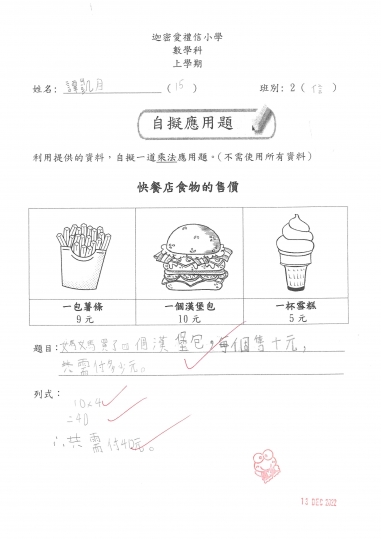 迦密愛禮信小學
數學科
上學期
姓名: 譚凱月 (15) 班別: 2 (信)
自擬應用題
利用提供的資料,自擬一道乘法應用題。(不需使用所有資料)
快餐店食物的售價
一包薯條 一個漢堡包 一杯雪糕
9 元 10 元 5 元
題目: 媽媽買了四個漢堡包,每個售十元,
共需付多少元。
列式:
10×4
=40
∴共需付40元。
13 DEC 2022